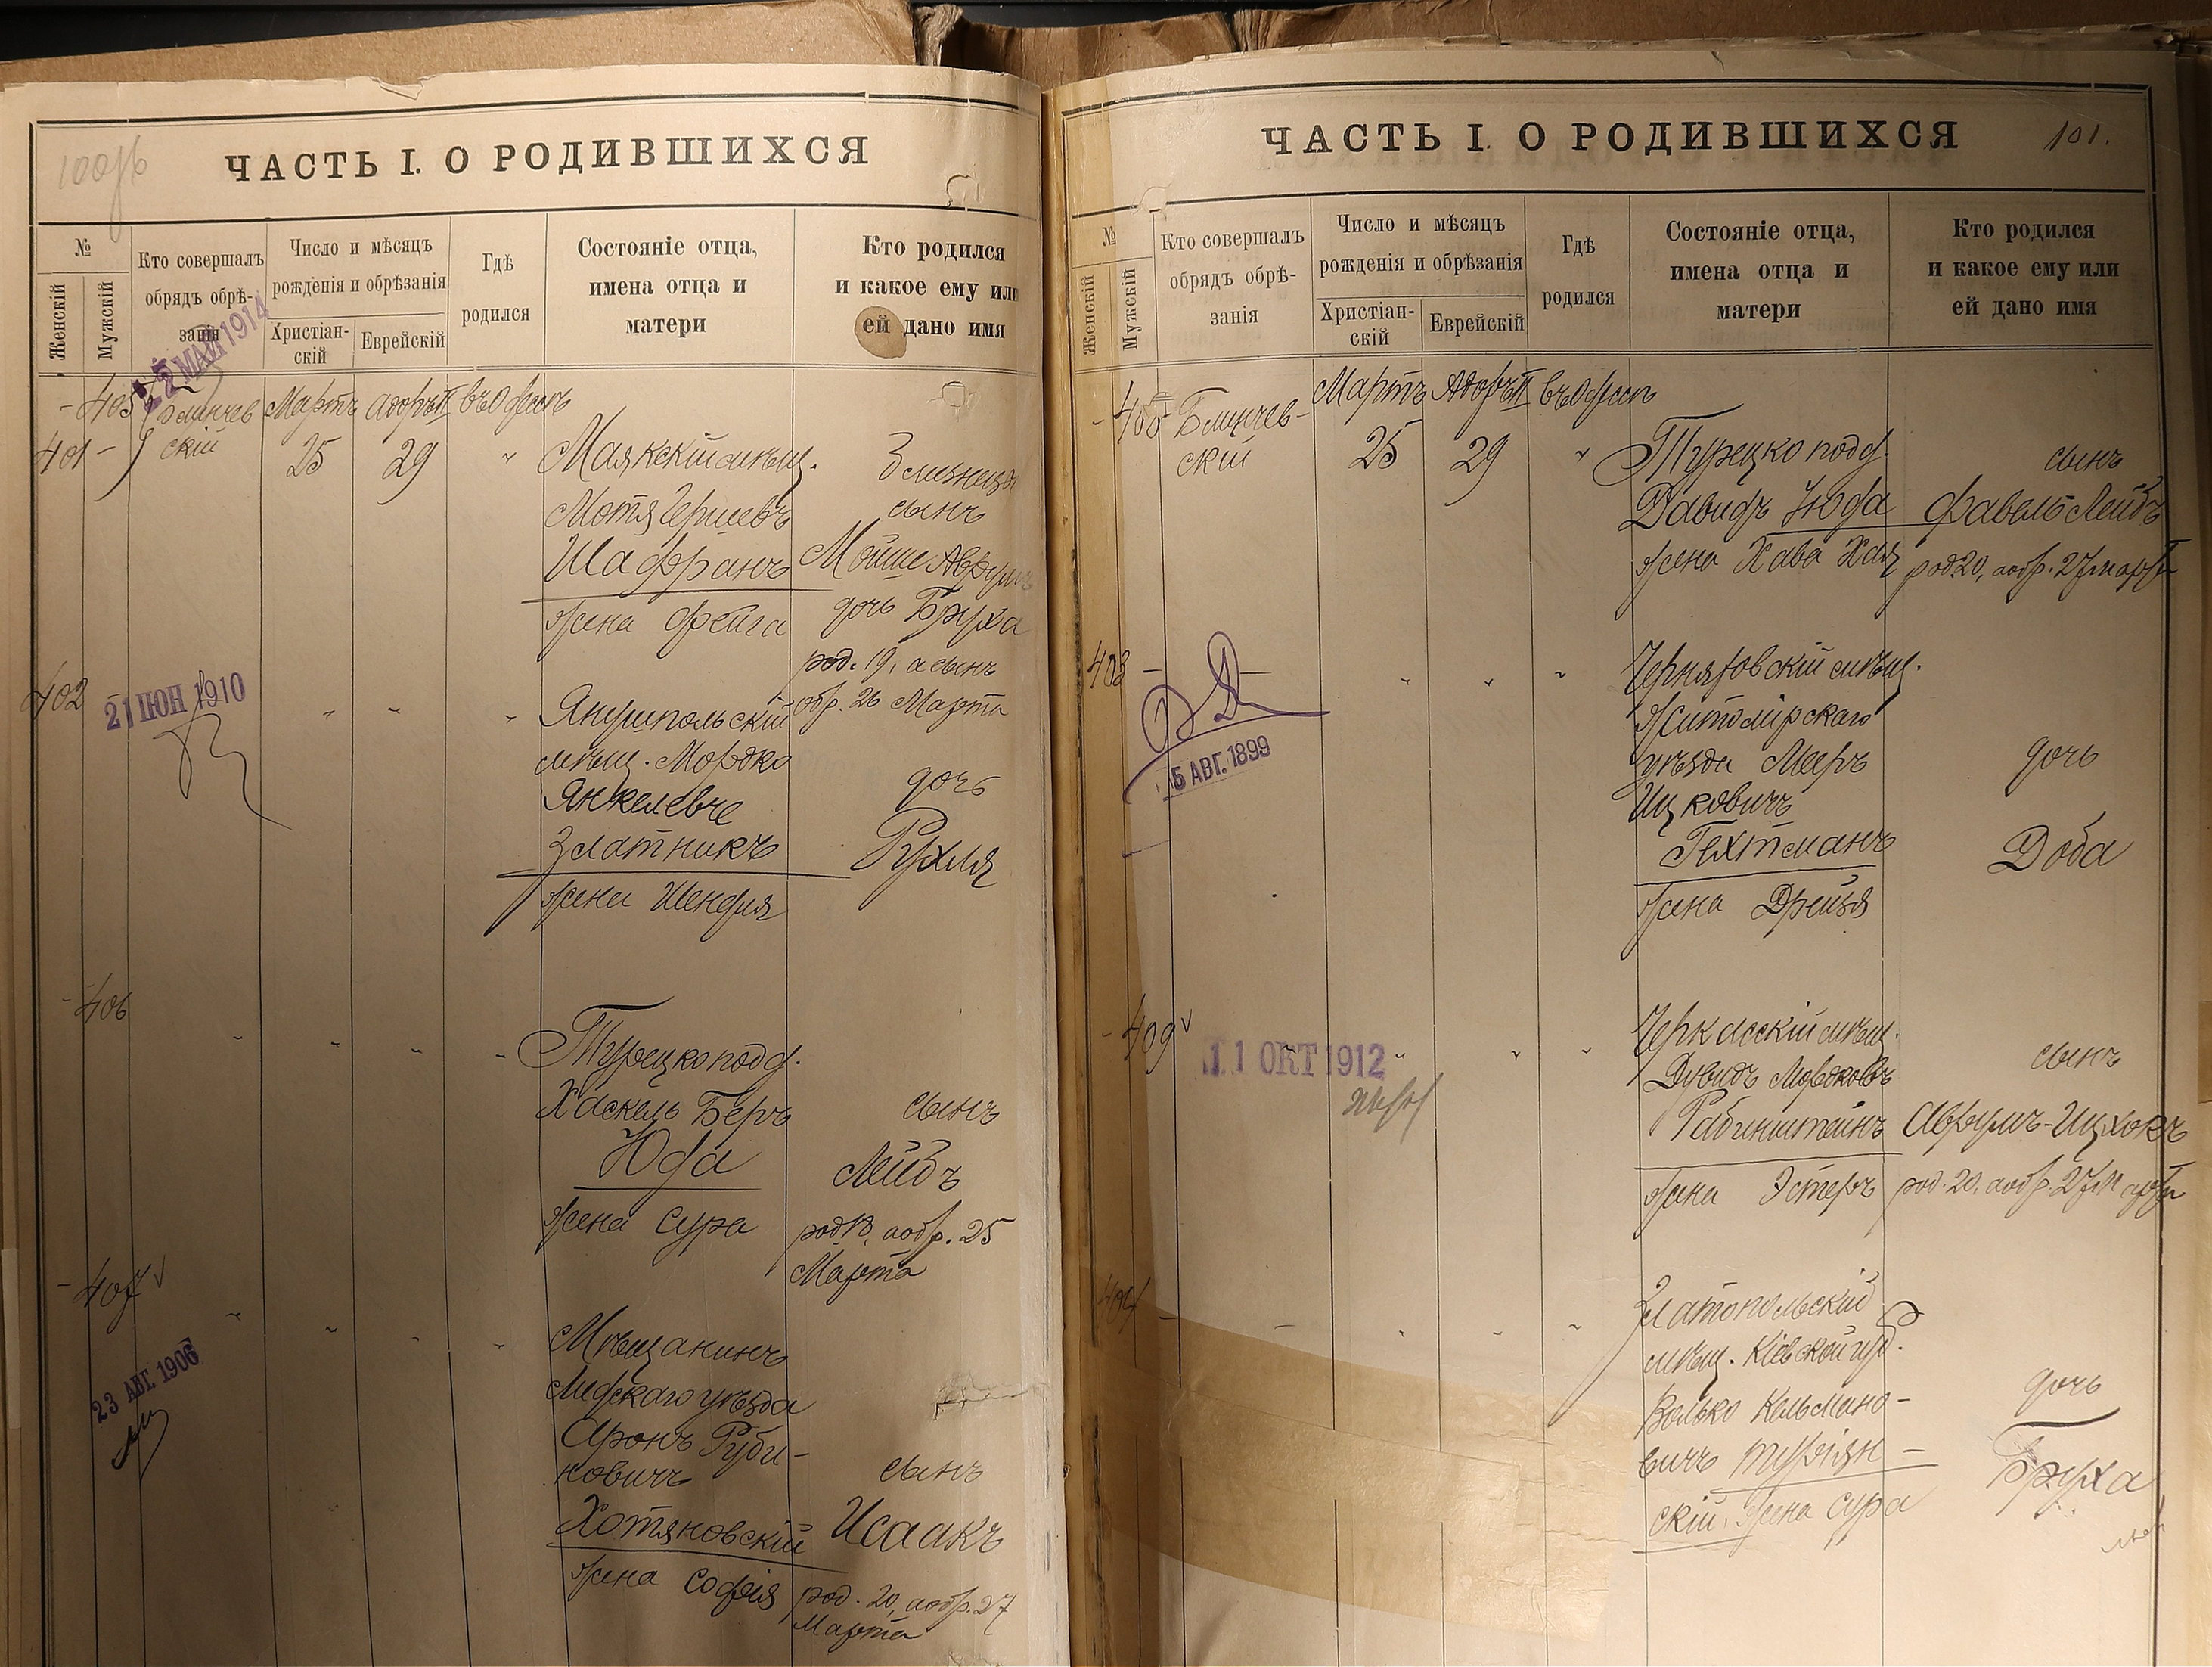 ЧАСТЬ I. О РОДИВШИХСЯ
№
Женскій
Мужскій
Кто совершалъ
обрядъ обрѣ-
занія
Число и мѣсяцъ
рожденія и обрѣзанія
Христіан-
скій
Еврейскій
Гдѣ
родился
Состояніе отца,
имена отца и
матери
Кто родился
и какое ему или
ей дано имя
2 МАЙ 1914
405 Блинчев Мартъ Адоръ II въ Одессѣ
401 - скій 25 29 " Маякскій мѣщ. Близнецы
Мотя Гершевъ сынъ
Шафранъ Мойше Аврумъ
жена Фейга дочь Бруха
род. 19, а сынъ
обр. 26 Марта
402
21 ІЮН 1910
Янушпольскій
мѣщ. Мордко
Янкелевъ дочь
Златникъ Рухля
жена Шендля
- 406
Турецкоподд.
Хаскель Беръ сынъ
Юфа Лейбъ
жена Сура род. 18, а обр. 25
Марта
- 407 √
23 АВГ. 1906
Мѣщанинъ
Лидскаго уѣзда
Аронъ Руби-
новичъ сынъ
Хотяновскій Исаакъ
жена Софія род. 20, а обр. 27
Марта
ЧАСТЬ I. О РОДИВШИХСЯ
101.
№
Женскій
Мужскій
Кто совершалъ
обрядъ обрѣ-
занія
Число и мѣсяцъ
рожденія и обрѣзанія
Христіан-
скій
Еврейскій
Гдѣ
родился
Состояніе отца,
имена отца и
матери
Кто родился
и какое ему или
ей дано имя
Блинчев- Мартъ Адоръ II въ Одессѣ
скій 25 29 " Турецкоподд. сынъ
Давидъ Юфа Фавель Лейбъ
жена Хава Хая род. 20, а обр. 27 марта
403 -
5 АВГ. 1899
Черняховскій мѣщ.
Житомірскаго
уѣзда Мееръ дочь
Ицковичъ
Гехтманъ Доба
жена Дрейзя
- 409 √
11 ОКТ 1912
Черкасскій мѣщ.
Дувидъ Мордковъ сынъ
Рабинштейнъ Аврумъ-Ицхокъ
жена Эстеръ род. 20, а обр. 27 марта
404 -
Златопольскій
мѣщ. Кіевской губ.
Волько Кельмано- дочь
вичъ Турян- Бруха
скій, жена Сура